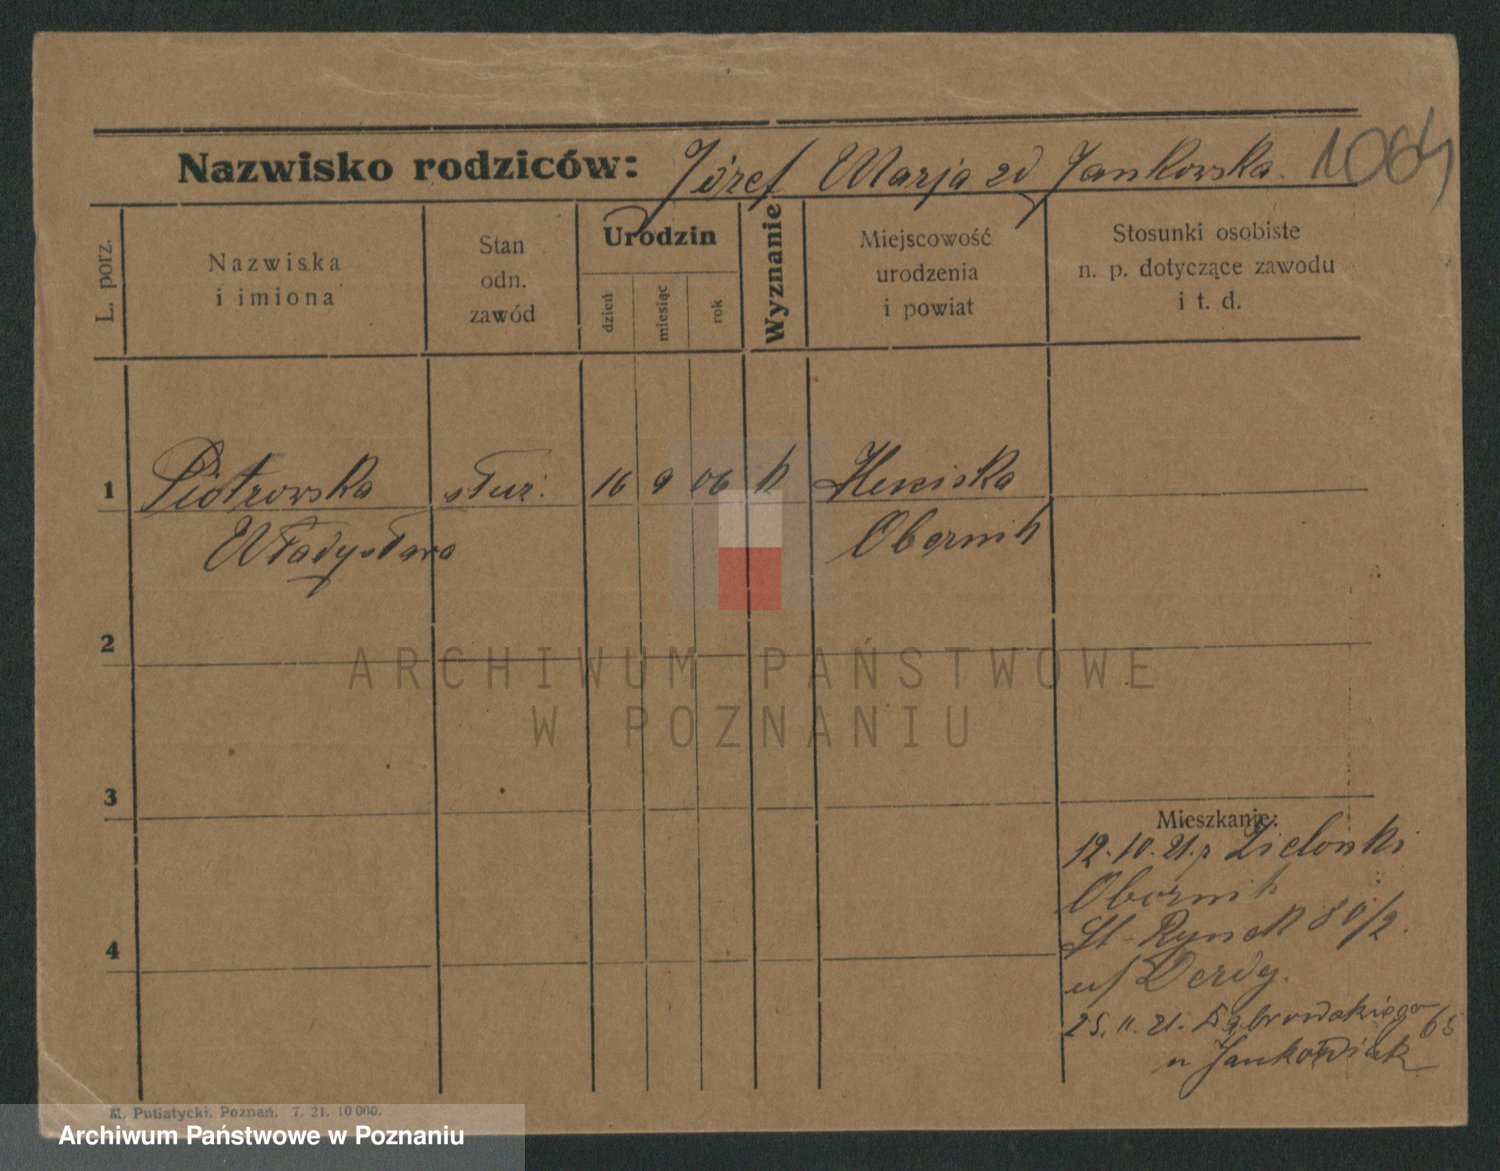 Nazwisko rodziców: Józef Marja zd Jankowska. 1064
L. porz.
Nazwiska
i imiona
Stan
odn.
zawód
Urodzin
dzień
miesiąc
rok
Wyznanie
Miejscowość
urodzenia
i powiat
Stosunki osobiste
n. p. dotyczące zawodu
i t. d.
1 Piotrowska służ. 16 9 06 k
Władysława Obornik
2
ARCHIWUM PAŃSTWOWE
W POZNANIU
3
Mieszkanie:
12.10.21. z Zielonki
Obornik
4
St-Rynek 80/2.
u/ Derdy.
25.11.21. Dąbrowskiego 65
u Jankowiak
M. Putiatycki, Poznań. 7. 21. 10 000.
Archiwum Państwowe w Poznaniu